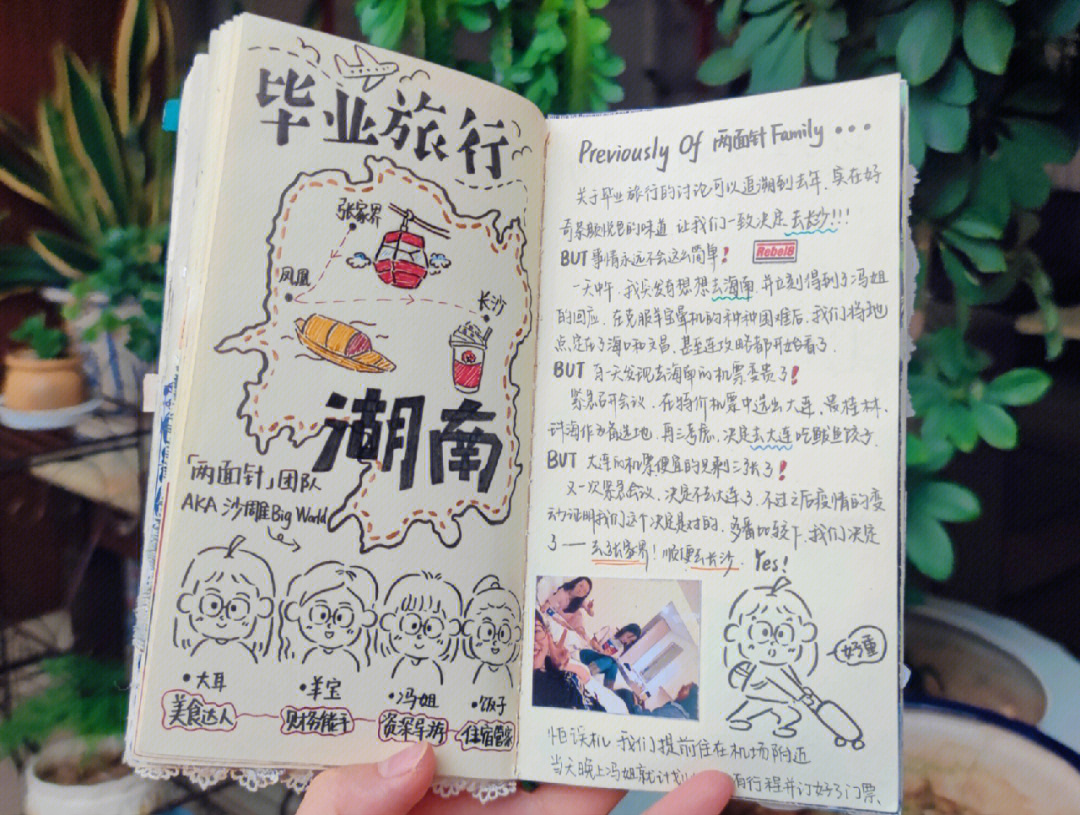 毕业旅行
张家界
凤凰
长沙
湖南
「两面针」团队
AKA 沙雕Big World
•大耳
•羊宝
•冯姐
•饭子
美食达人
财务能手
资深导游
住宿管家
Previously Of 两面针Family •••
关于毕业旅行的讨论可以追溯到去年，实在好
奇茶颜悦色的味道 让我们一致决定 去长沙!!!
BUT 事情永远不会这么简单!
Rebel8
一天中午，我突发奇想想去海南，并立刻得到了冯姐
的回应，在克服羊宝晕机的种种困难后，我们将地
点定在了海口和文昌，甚至连攻略都开始看了.
BUT 有一天发现去海南的机票变贵了!
紧急召开会议，在特价机票中选出大连、桂林、
珠海作为备选地，再三考虑，决定去大连吃虾追饺子.
BUT 大连的机票便宜的只剩三张了!
又一次紧急会议，决定不去大连了，不过之后疫情的变
动证明我们这个决定是对的，多番比较下，我们决定
了——去张家界！顺便去长沙. Yes!
好重
怕误机 我们提前住在机场附近
当天晚上冯姐就计划 有行程并订好了门票、